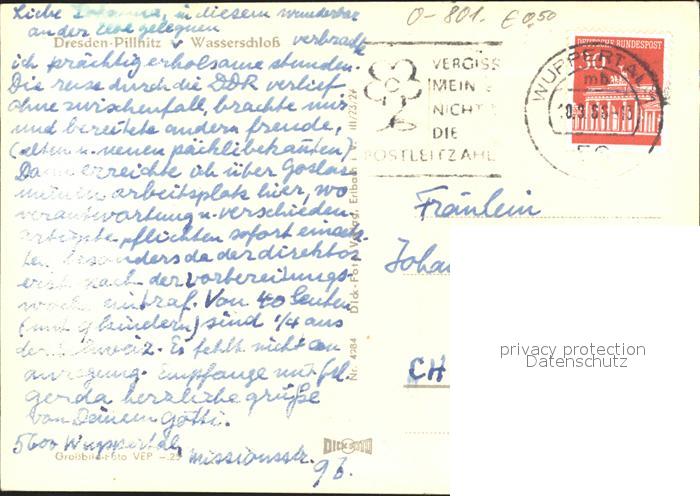 Liebe Johanna, in diesem wunderbar
an der Elbe gelegnen
Dresden-Pillnitz Wasserschloß
verbrachte
ich prächtig erholsame stunden.
Die reise durch die DDR verlief
ohne zwischenfall, brachte mir
und bereitete andern freude,
(alten u. neuen päckli bekannten)
Dann erreichte ich über Goslar
meinen arbeitsplatz hier, wo
verantwortung u. verschieden-
artigste pflichten sofort einsetz-
ten besonders da der direktor
erst nach der vorbereitungs-
woche eintraf. Von 40 Leuten
(mit 9 kindern) sind 1/4 aus
der Schweiz. Es fehlt nicht an
anregung. Empfange mit frl.
gerda herzliche grüße
von Deinem Götti.
5600 Wuppertal,
missionsstr.
9 b.
Großbild-Foto VEP -.25
Nr. 4284 Dick-Foto Verlag, Erlbach i. V. III/23/24
DICK FOTO
0-801. € 0,50
VERGISS
MEIN
NICHT
DIE
POSTLEITZAHL
WUPPERTAL
mb
56
DEUTSCHE BUNDESPOST
30
Fräulein
Joha
CH
privacy protection
Datenschutz